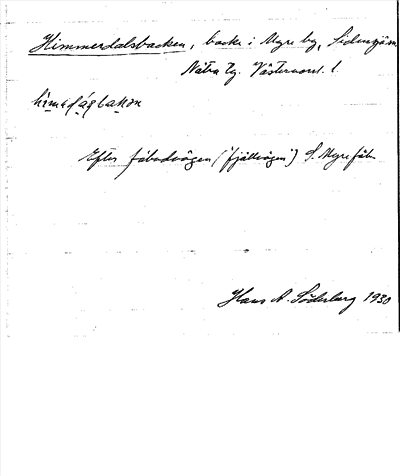 Himmerdalsbacken, backe i Myre by, Sidensjö sn
Nätra tg. Västernorrl. l.
Efter fäbodvägen ("fjällvägen") S. Myre fäb.
Hans A. Söderberg 1930